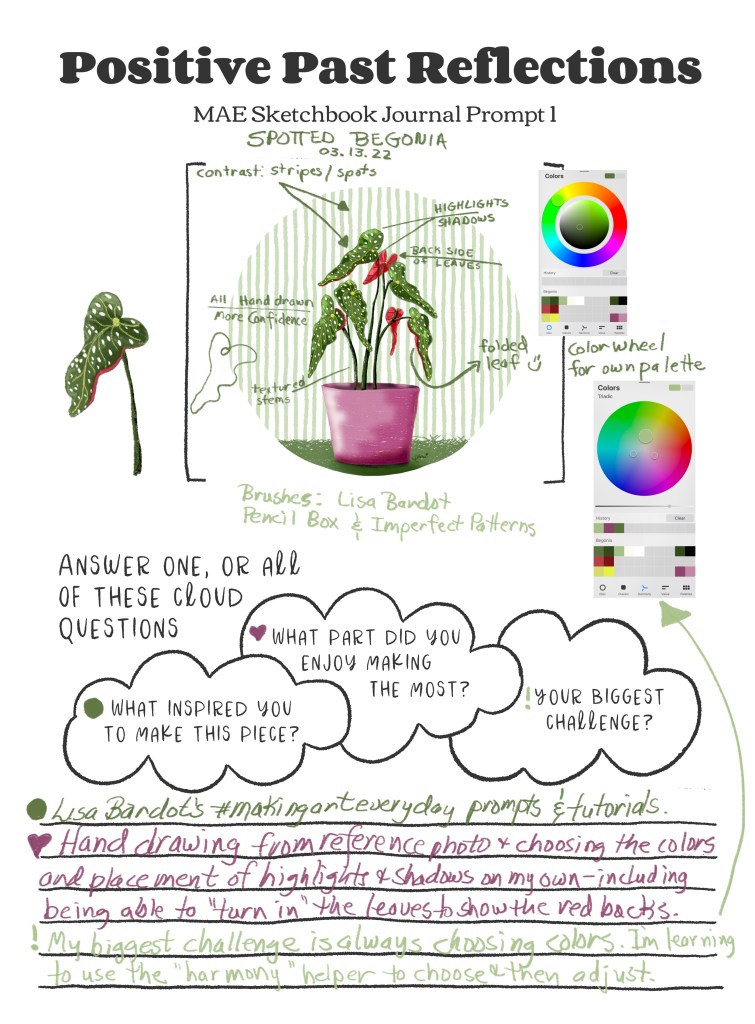 Positive Past Reflections
MAE Sketchbook Journal Prompt 1
SPOTTED BEGONIA
03.13.22
contrast: stripes/spots
HIGHLIGHTS
SHADOWS
BACK SIDE
OF LEAVES
All Hand drawn
More Confidence
textured
stems
folded
leaf
Colors
History
Clear
Begonia
Color wheel
for own palette
Colors
Triadic
History
Clear
Begonia
Brushes: Lisa Bardot
Pencil Box & Imperfect Patterns
ANSWER ONE, OR All
OF THESE ClOUD
QUESTIONS
WHAT PART DID YOU
ENJOY MAKING
THE MOST?
WHAT INSPIRED YOU
TO MAKE THIS PIECE?
! YOUR BIGGEST
CHAllENGE?
Lisa Bardot's #makingarteveryday prompts & tutorials.
Hand drawing from reference photo + choosing the colors
and placement of highlights & shadows on my own - including
being able to "turn in" the leaves to show the red backs.
! My biggest challenge is always choosing colors. I'm learning
to use the "harmony" helper to choose & then adjust.